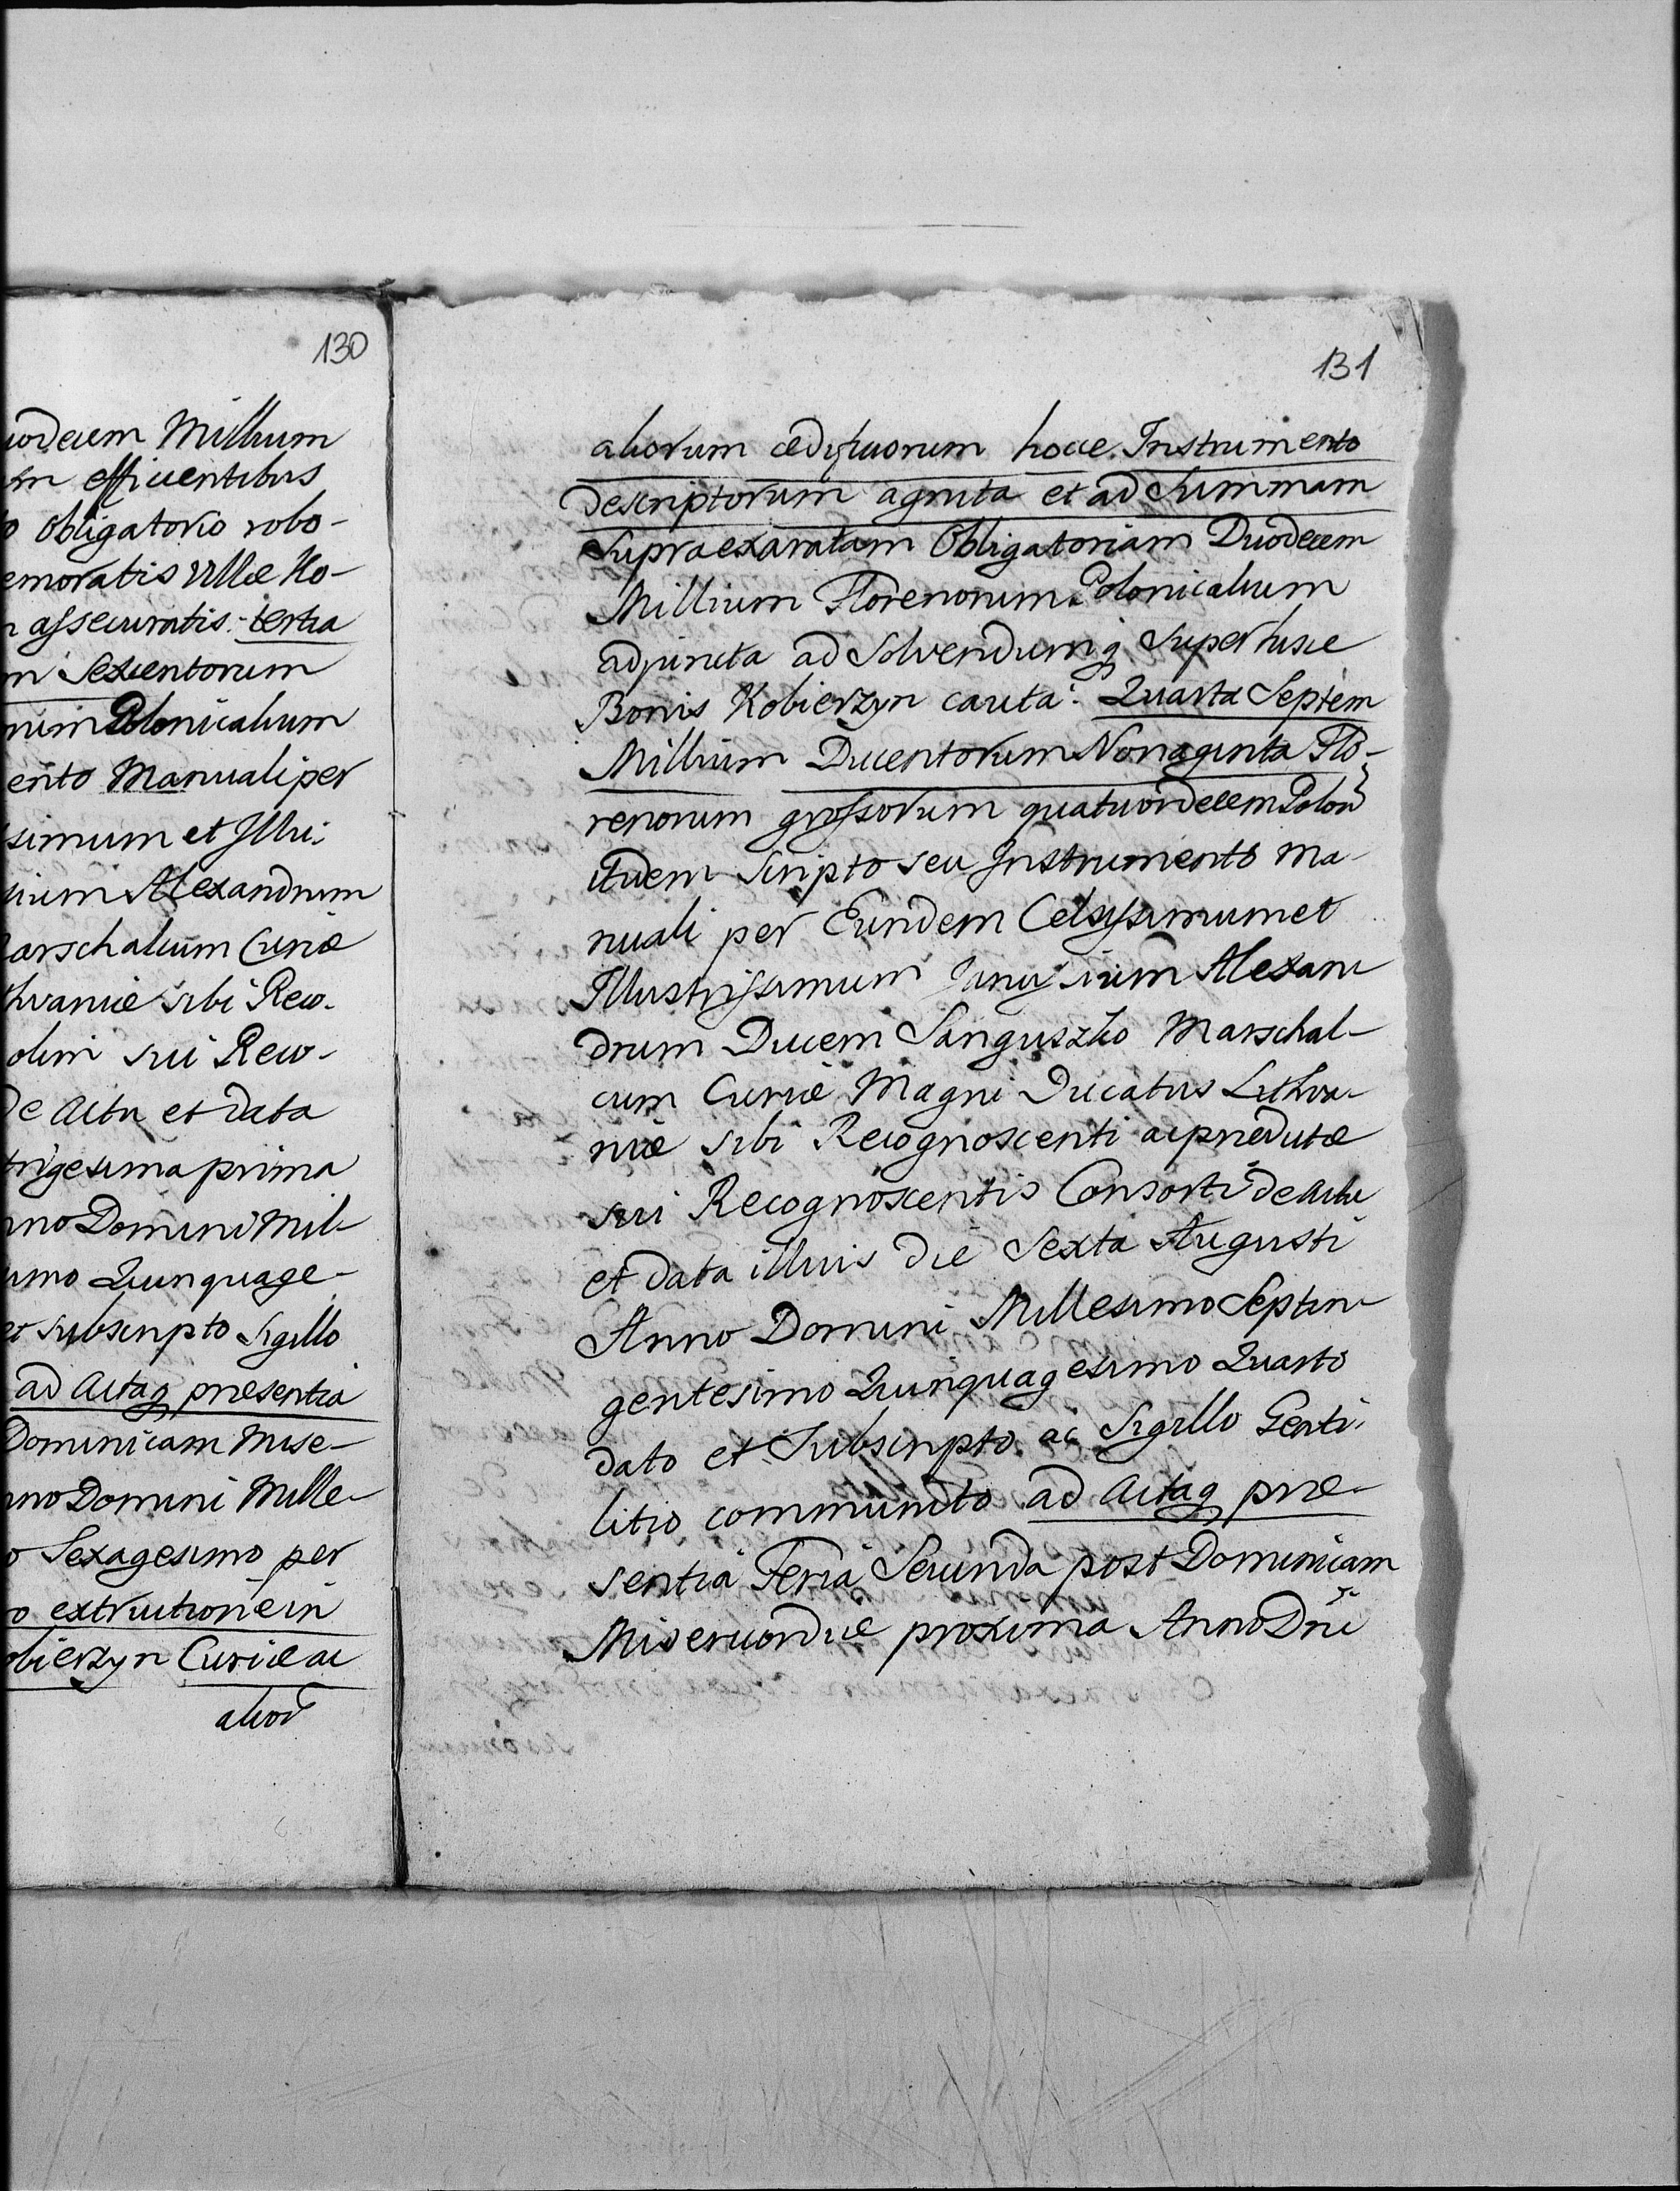 130
uodecim Millium
m efficientibus
o Obligatorio robo-
emoratis villæ Ko-
n assecuratis: tertia
m Sexcentorum
num Polonicalium
ento Manuali per
simum et Illu-
sium Alexandrum
Marschalcum Curiæ
thvaniæ sibi Reco-
olim sui Reco-
de Actu et data
trigesima prima
nno Domini Mil-
imo Quinquage-
et subscripto Sigillo
ad Actaq presentia
Dominicam Mise-
nno Domini Mille-
o Sexagesimo per
o extructione in
obierzyn Curiæ ac
alior
131
aliorum ædificiorum hocce Instrumento
descriptorum agnita et ad Summam
Supraexaratam Obligatoriam Duodecem
Millium Florenorum Polonicalium
adjuncta ad Solvendumq Super hisce
Bonis Kobierzyn cauta: Quarta Septem
Millium Ducentorum Nonaginta Flo-
renorum grossorum quatuordecem Polon
itidem Scripto seu Instrumento Ma-
nuali per Eundem Celsissimum et
Illustrissimum Janussium Alexan-
drum Ducem Sanguszko Marschal-
cum Curiæ Magni Ducatus Lithva-
niæ sibi Recognoscenti ac prædictæ
sui Recognoscentis Consorti de Actu
et data illius die Sexta Augusti
Anno Domini Millesimo Septin-
gentesimo Quinquagesimo Quarto
dato et Subscripto ac Sigillo Genti-
litio communito ad Actaq præ-
sentia Feria Secunda post Dominicam
Misericordiæ proxima Anno Dni